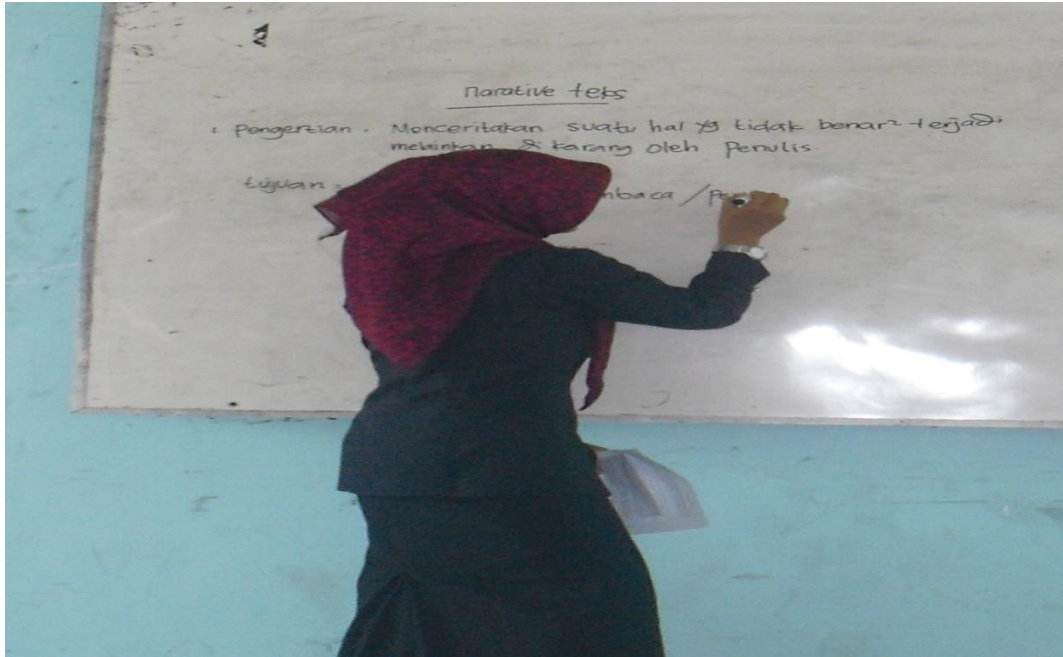 Narative teks
Pengertian. Menceritakan suatu hal yg tidak benar² terjadi
melainkan di karang oleh Penulis.
tujuan :